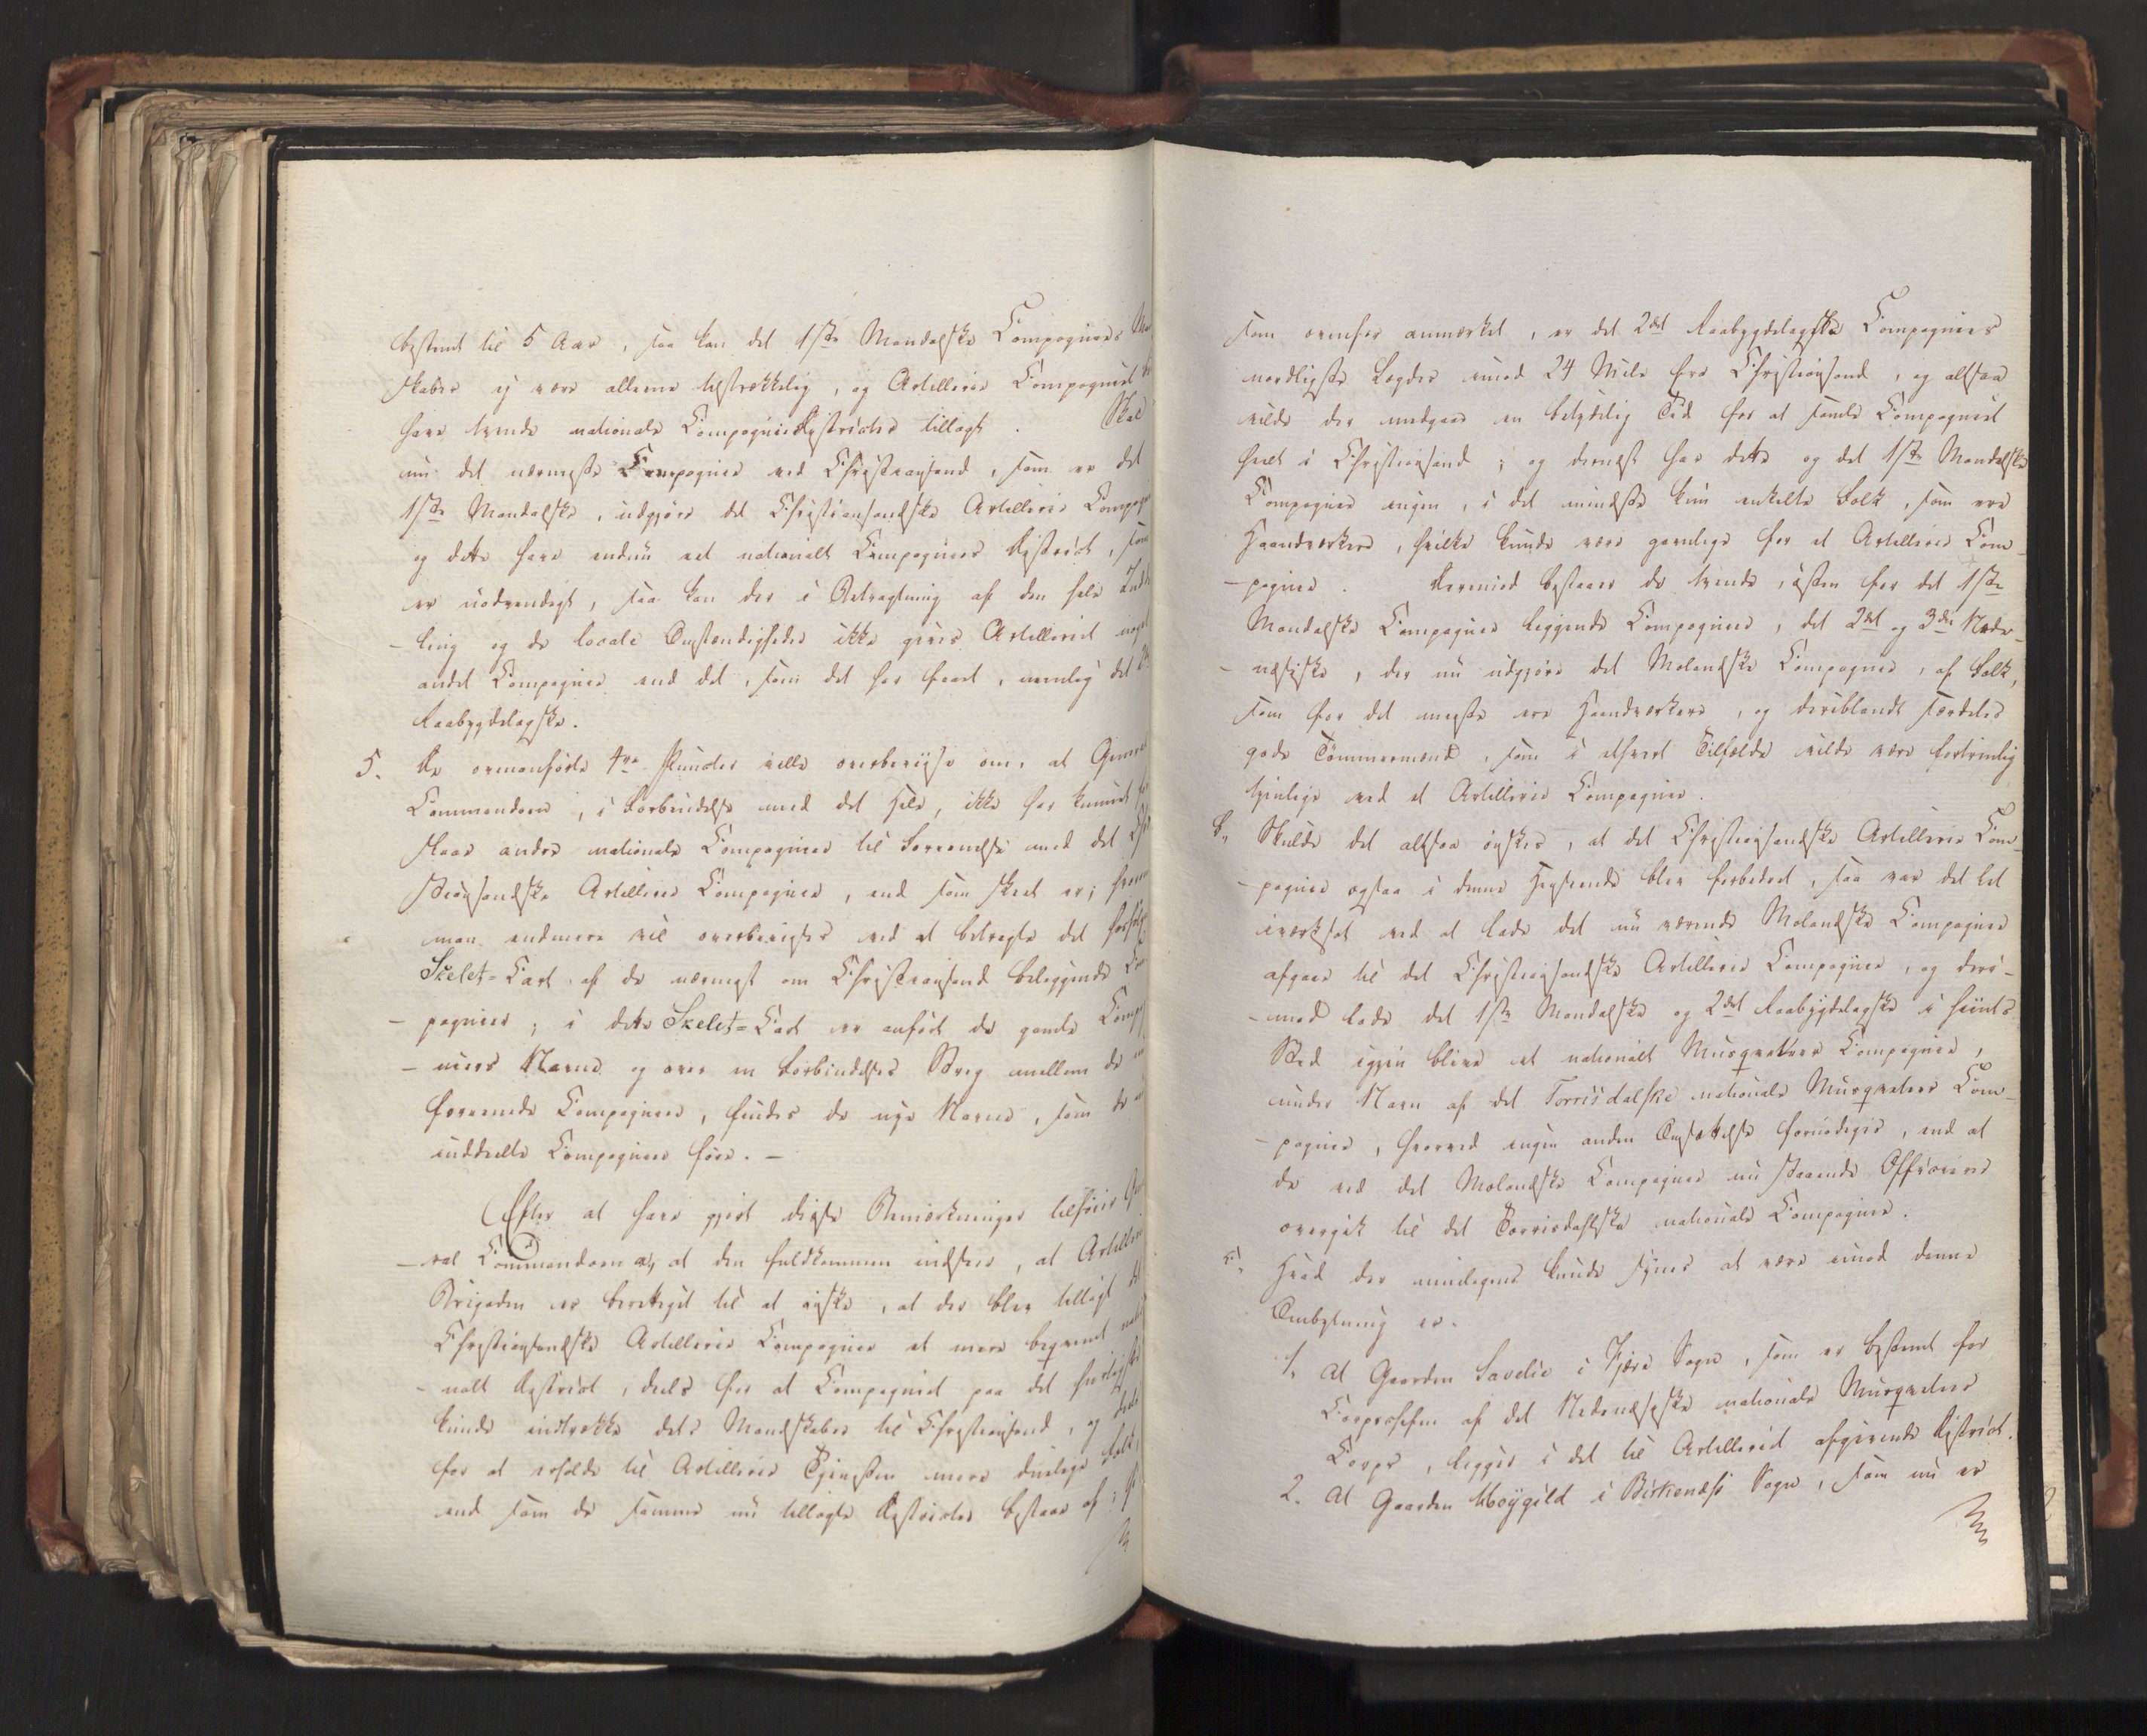 bestemt til 5 Aar, saa kan det 1ste Mandalske Compagnies
skaber ej være alleene tilstrekkelig, og Artillerie Compagniet
have tvende nationale Compagnie Districter tillagt. Skal
nu det nærmeste Compagnie ved Christiansand, som er det
1ste Mandalske, udgjøre det Christiansandske Artillerie Compag
og dette have endnu et nationalt Compagnies District, som
er nødvendigt, saa kan der i Betragtning af den hele Indde
-ling og de locale Omstændigheder ikke gives Artilleriet noget
andet Compagnie end det, som det har faaet, nemlig det 2det
Raabygdelagske.
5. De ovenanførte 4re Puncter ville overbeviise om, at General
Commandoen, i Forbindelse med det Hele, ikke har kunnet fore
slaae andre nationale Compagnier til Foreenelse med det Chri
stiansandske Artillerie Compagnie, end som skeet er; hvorom
man endmere vil overbevises ved at betragte det
Skelet-Cart af de nærmest om Christiansand beliggende Com
-pagnier; i dette Skelet-Cart er anført de gamle Compag
-niers Navne og over en Forbindelses Streg mellem de nu
foreenede Compagnier, findes de nye Navne, som de
inddeelte Compagnier føre. -
Efter at have gjort disse Bemærkninger tilføier Gene
-ral Commandoen a, at den fuldkommen indseer, at Artillerie
Brigaden er berettiget til at ønske, at der blev tillagt det
Christiansandske Artillerie Compagnie et mere beqvemt natio
-nalt District, deels for at Compagniet paa det hurtigste
kunde indtrekke dets Mandskaber til Christiansand, og deels
for at erholde til Artillerie Tjenesten mere duelige Folk,
end som de samme nu tillagte Districter bestaae af;
som ovenfor anmerket, er det 2det Raabygdelagske Compagnies
nordligste Lægder imod 24 Mile fra Christiansand, og altsaa
vilde der medgaae en betydelig Tid for at samle Compagniet
heelt i Christiansand; og dernæst har dette og det 1ste Mandalske
Compagnie ingen, i det mindste kun enkelte Folk, som ere
Haandværkere, hvilke kunde være gavnlige for et Artillerie Com-
-pagnie. Derimod bestaaer de tvende, østen for det 1ste
Mandalske Compagnie liggende Compagnier, det 2det og 3die Nede-
-næsiske, der nu udgjøre det Molandske Compagnie, af Folk,
som for det meeste ere Haandværkere, og deriblandt særdeles
gode Tømmermænd, som i ethvert Tilfælde vilde være fortrinlig
tjenlige ved et Artillerie Compagnie.
b, Skulde det altsaa ønskes, at det Christiansandske Artillerie Com-
-pagnie ogsaa i denne Henseende blev forbedret, saa var det let
iverksat ved at lade det nu værende Molandske Compagnie
afgaae til det Christiansandske Artillerie Compagnie, og deri-
-mod lade det 1ste Mandalske og 2det Raabygdelagske i hiints
Sted igjen blive et nationalt Musqveteer Compagnie,
under Navn af det Torrisdalske nationale Musqveteer Com-
-pagnie, hvorved ingen anden Omsættelse fornødiges, end at
de ved det Molandske Compagnie nu staaende Officerer
overgik til det Torrisdahlske nationale Compagnie.
c, Hvad der mueligens kunde synes at være imod denne
Ombytning er.
1. At Gaarden Savelie i Fjære Sogn, som er bestemt for
Corpschefen af det Nedenæsiske nationale Musqveteer
Corps, ligger i det til Artilleriet afgivende District.
2. At Gaarden Møygild i Birkenæss Sogn, som nu er